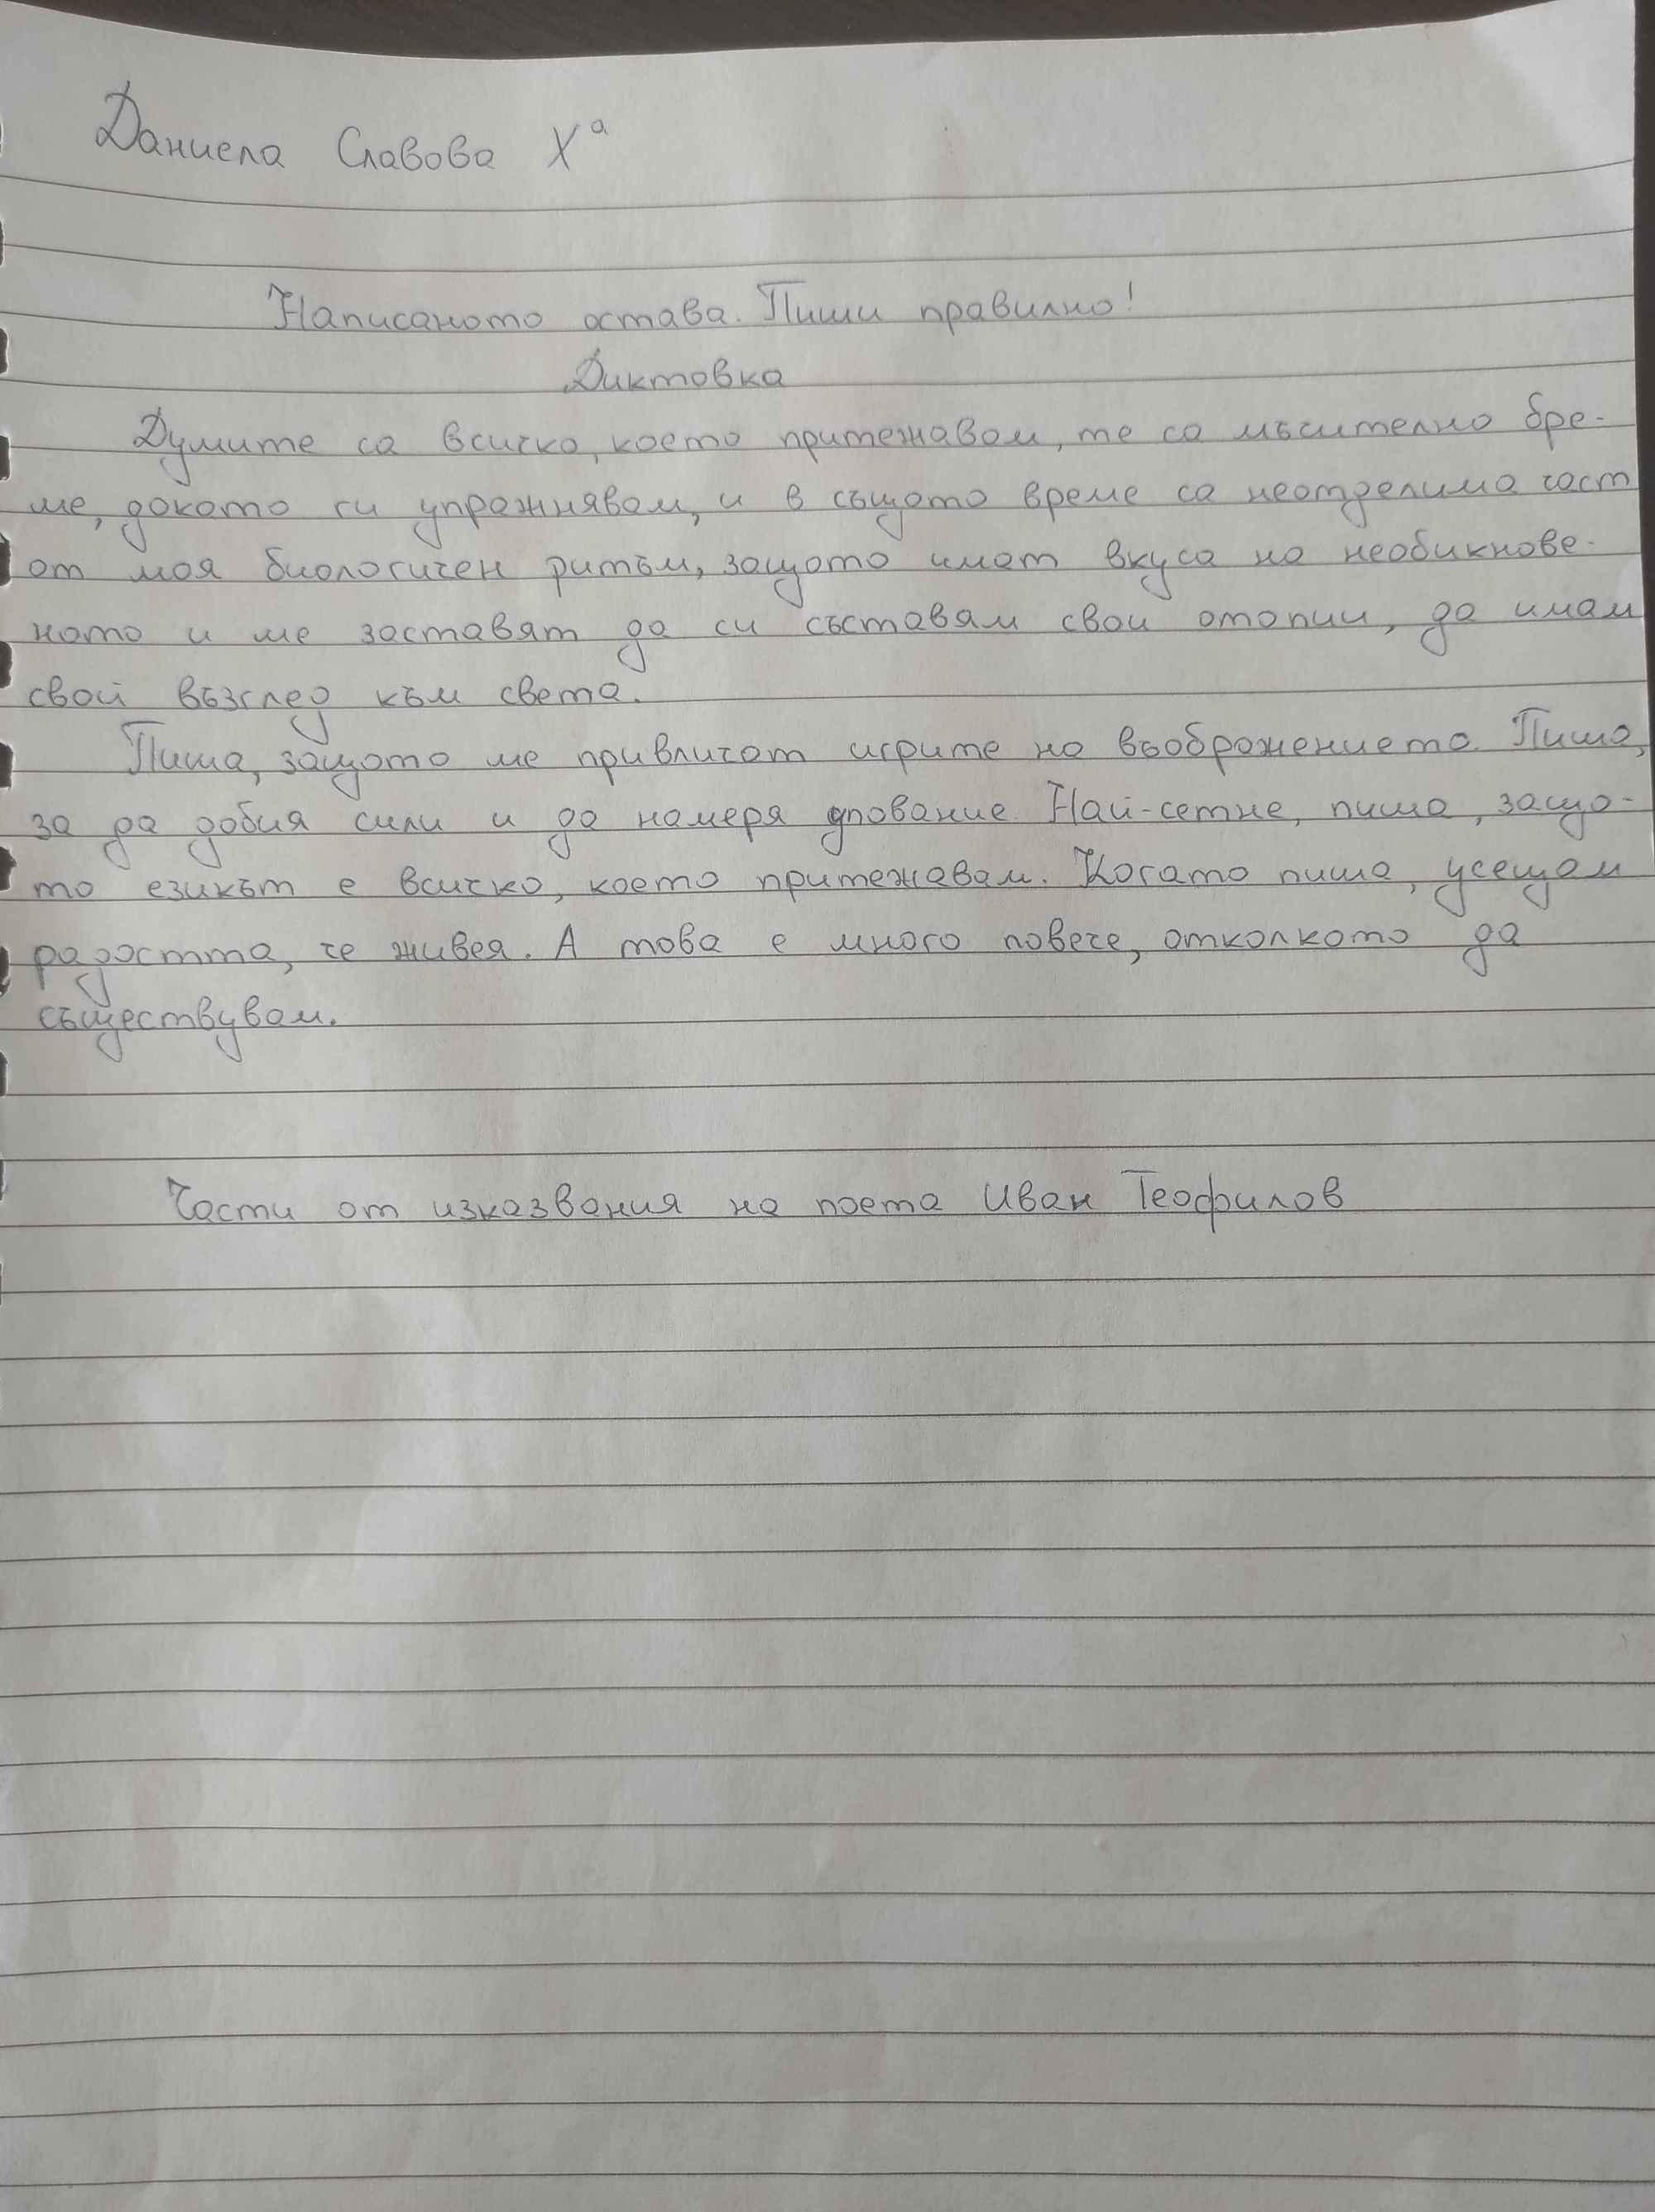 Даниела Славова Xª
Написаното остава. Пиши правилно!
Диктовка
Думите са всичко, което притежавам, те са мъчително бре-
ме, докато ги упражнявам, и в същото време са неотделима част
от моя биологичен ритъм, защото имат вкуса на необикнове-
ното и ме заставят да си съставям свои отопии, да имам
свой възглед към света.
Пиша, защото ме привличат игрите на въображението. Пиша,
за да добия сили и да намеря упование. Най-сетне, пиша, защо-
то езикът е всичко, което притежавам. Когато пиша, усещам
радостта, че живея. А това е много повече, отколкото да
съществувам.
Части от изказвания на поета Иван Теофилов